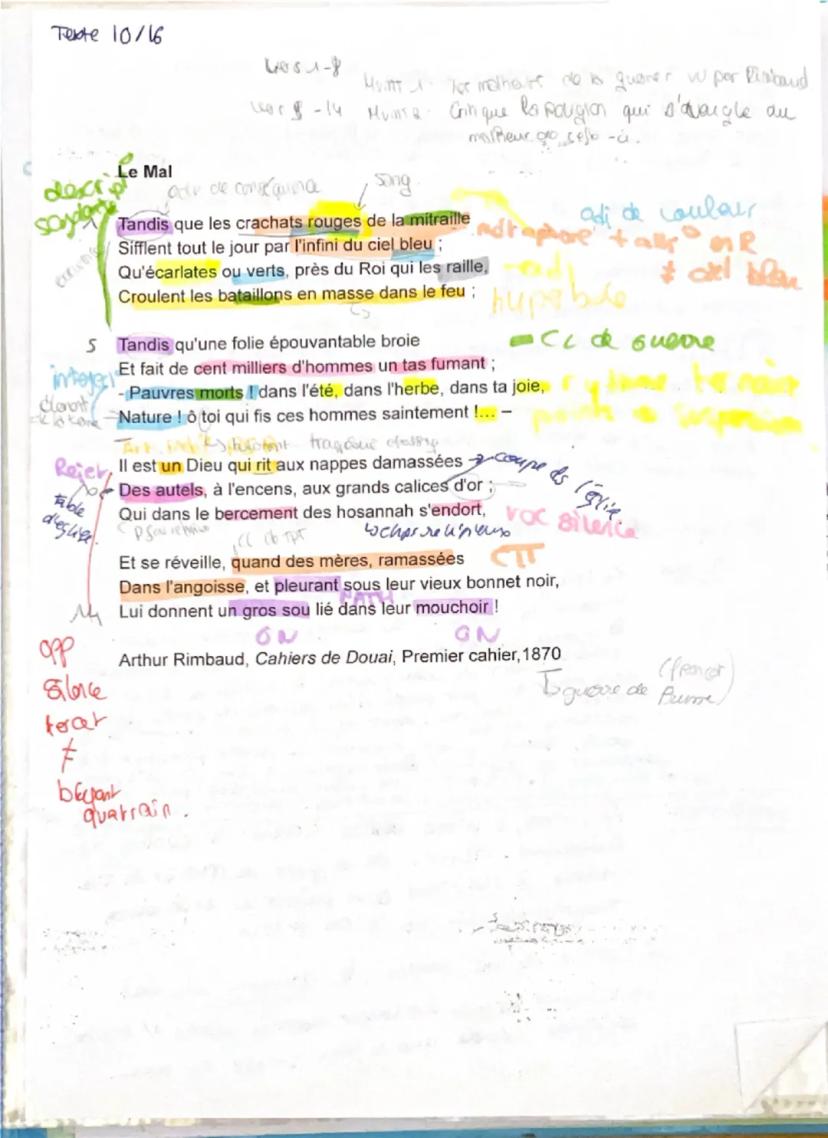 Texte 10/16
Vers 1-8
Mvmt 1 - de la guerre vu par Rimbaud
Vers 8 -14 Mvmt 2 - Critique la qui s'aveugle au
malheur de
Le Mal
descript°
sanglante
adv de conséquence
sang
adj de couleur
Tandis que les crachats rouges de la mitraille
métaphore + all° en R
Sifflent tout le jour par l'infini du ciel bleu ;
≠ ciel bleu
Qu'écarlates ou verts, près du Roi qui les raille,
Croulent les bataillons en masse dans le feu ;
hyperbole
5 Tandis qu'une folie épouvantable broie
CL de guerre
Et fait de cent milliers d'hommes un tas fumant ;
interject°
- Pauvres morts ! dans l'été, dans l'herbe, dans ta joie,
rythme ternaire
Nature ! ô toi qui fis ces hommes saintement !... –
points de suspension
Il est un Dieu qui rit aux nappes damassées
coupe de l'église
Rejet
Des autels, à l'encens, aux grands calices d'or ;
table
d'église
Qui dans le bercement des hosannah s'endort,
voc silence
Et se réveille, quand des mères, ramassées
CCT
Dans l'angoisse, et pleurant sous leur vieux bonnet noir,
14 Lui donnent un gros sou lié dans leur mouchoir !
GN GN
Arthur Rimbaud, Cahiers de Douai, Premier cahier,1870
guerre de
opp
silence
tercet
≠
bruyant
quatrain.